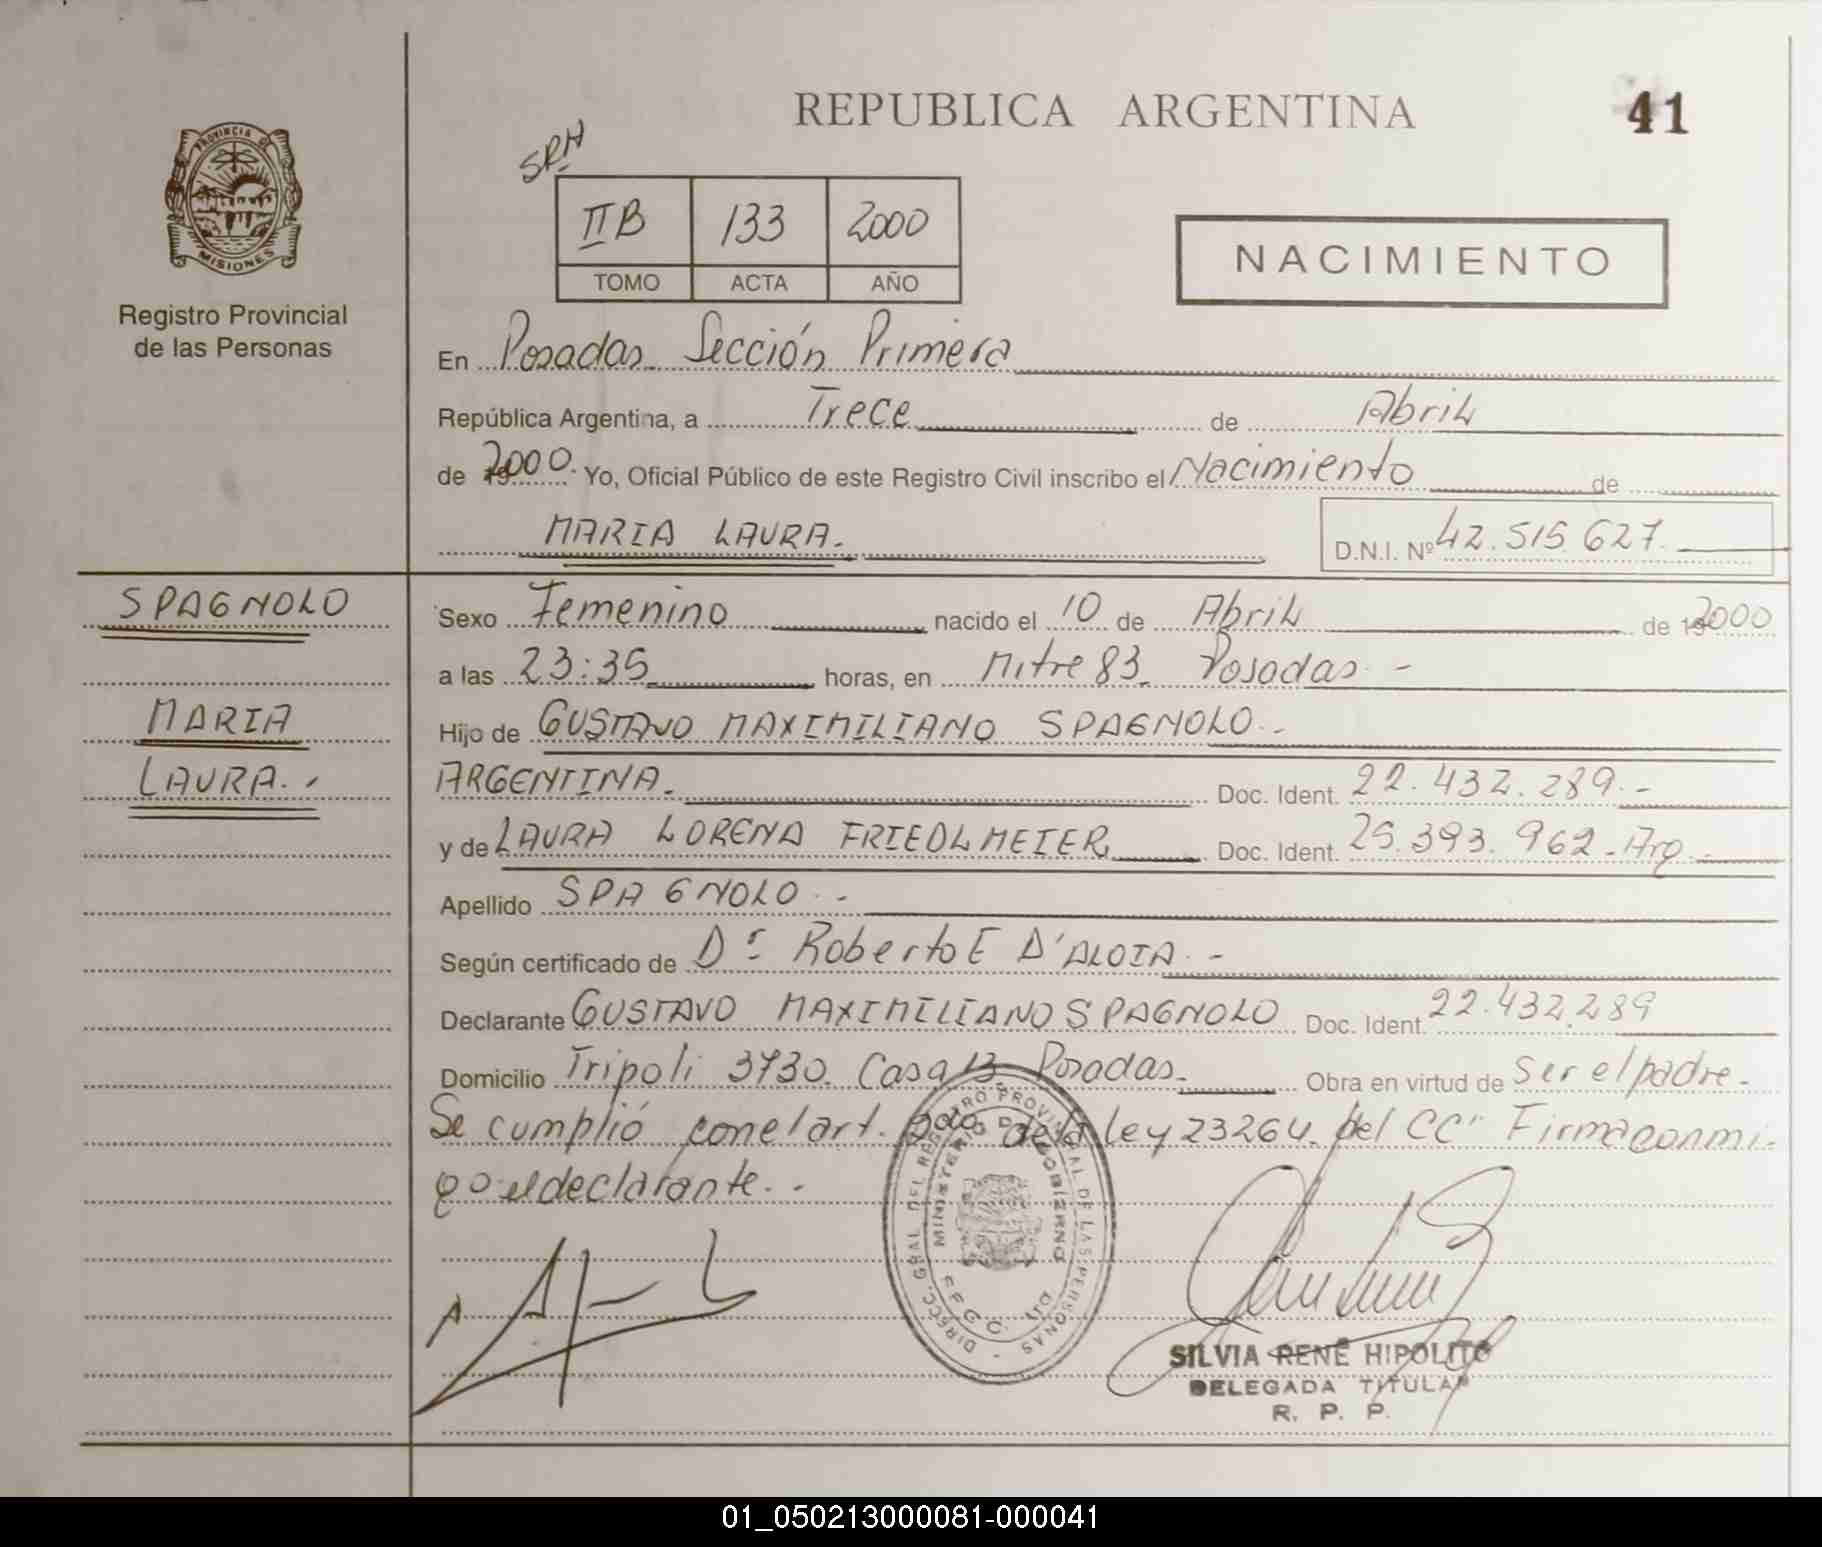 REPUBLICA ARGENTINA
41
PROVINCIA D
MISIONES
Registro Provincial
de las Personas
SRH
IIB 133 2000
TOMO ACTA AÑO
NACIMIENTO
En Posadas Sección Primera
República Argentina, a Trece de Abril
de 2000. Yo, Oficial Público de este Registro Civil inscribo el Nacimiento de
MARIA LAURA.
D.N.I. Nº 42.515.627.
SPAGNOLO
MARIA
LAURA.-
Sexo Femenino nacido el 10 de Abril de 2000
a las 23:35 horas, en Mitre 83 Posadas -
Hijo de GUSTAVO MAXIMILIANO SPAGNOLO.-
ARGENTINA. Doc. Ident. 22.432.289.-
y de LAURA LORENA FRIEDLMEIER Doc. Ident. 25.393.962-Arg.-
Apellido SPAGNOLO.-
Según certificado de Dr Roberto E D'ALOIA.-
Declarante GUSTAVO MAXIMILIANO SPAGNOLO Doc. Ident. 22.432.289
Domicilio Tripoli 3730. Casa 13 Posadas. Obra en virtud de Ser el padre.
Se cumplió con el art. de la Ley 23264. del CC" Firma conmi
go el declarante.-
DIRECC. GRAL. DEL REGISTRO PROVINCIAL DE LAS PERSONAS
MINISTERIO DE GOBIERNO
SILVIA RENÉ HIPOLITO
DELEGADA TITULAR
R. P. P.
01_050213000081-000041